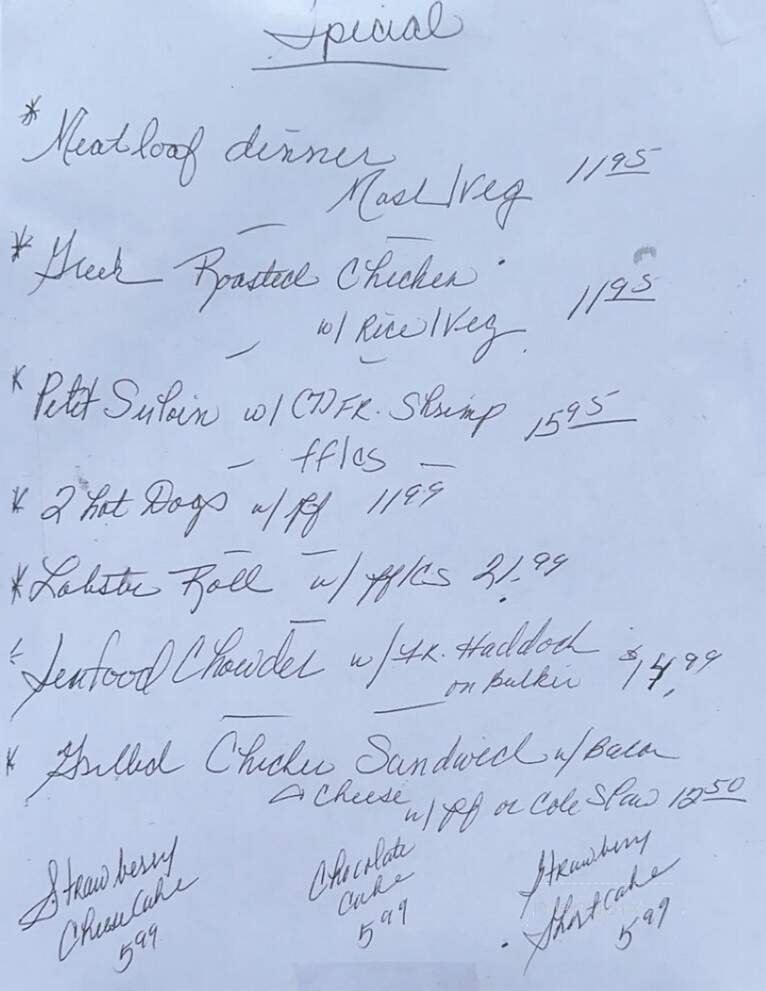 Special
* Meatloaf dinner
Mash/Veg 11 95
* Greek Roasted Chicken
w/ Rice/Veg 11 95
* Petit Sirloin w/ (7) FR. Shrimp 15 95
ff/cs
* 2 hot Dogs w/ ff 11 99
* Lobster Roll w/ ff/cs 21.99
* Seafood Chowder w/ FR. Haddock
on Bulkie $14.99
* Grilled Chicken Sandwich w/ Bacon
& Cheese w/ ff or Cole Slaw 12 50
Strawberry
CheeseCake
5 99
Chocolate
Cake
5 99
Strawberry
Shortcake
5 99